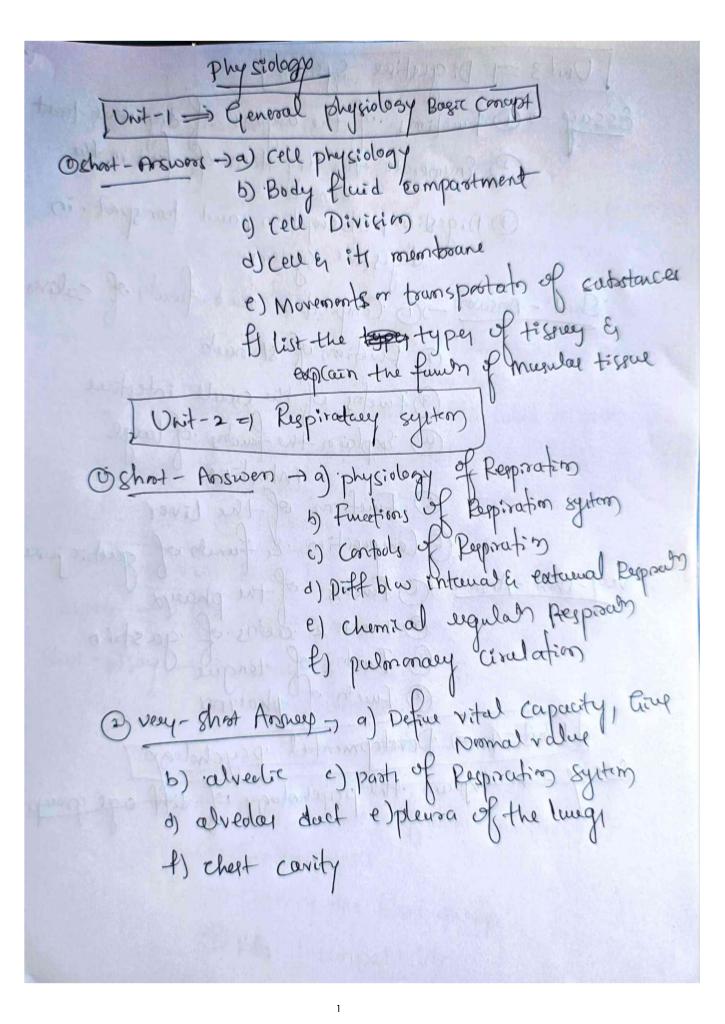 Physiology
Unit-1 ⇒ General physiology Basic Concept
① Short-Answers → a) cell physiology
b) Body fluid compartment
c) Cell Division
d) cell & its membrane
e) Movements or transportatn of substances
f) list the types of tissues &
explain the functn of muscular tissue
Unit-2 ⇒ Respiratory system
① Short-Answers → a) physiology of Respiration
b) Functions of Respiration system
c) Controls of Respiration
d) Diff b/w internal & external Respiratn
e) chemical regulatn Respiratn
f) pulmonary Circulation
② very-Short Answers → a) Define vital capacity, Give
Normal value
b) alveolic c) parts of Respiration system
d) alveolar duct e) pleura of the lungs
f) chest cavity
1